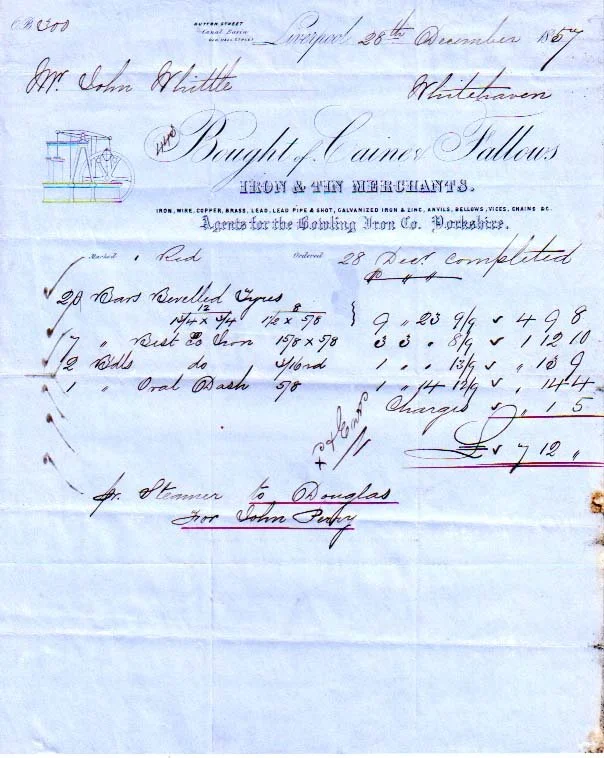 O.B. 300
DUTTON STREET
Canal Basin
Liverpool 28th December 1857
Mr. John Whittle
Whitehaven
Bought of Caine & Fallows
IRON & TIN MERCHANTS.
IRON, WIRE, COPPER, BRASS, LEAD, LEAD PIPE & SHOT, GALVANIZED IRON & ZINC, ANVILS, BELLOWS, VICES, CHAINS &C.
Agents for the Bowling Iron Co. Yorkshire.
Marked Red Ordered 28 Decr. completed
20 Bars Bevelled Tyres
12 8
1 3/4 x 3/4 1 1/2 x 5/8 } 9 " 23 9/9 4 9 8
7 " Best Iron 1 5/8 x 5/8 3 3 " 8/9 1 12 10
2 Bdls do 3/16 rd 1 " " 13/9 " 13 9
1 " Oval Dash 5/8 1 " 14 12/9 " 14 4
Charges " 1 5
£ 7 12 "
pr. Steamer to Douglas
For John Perry